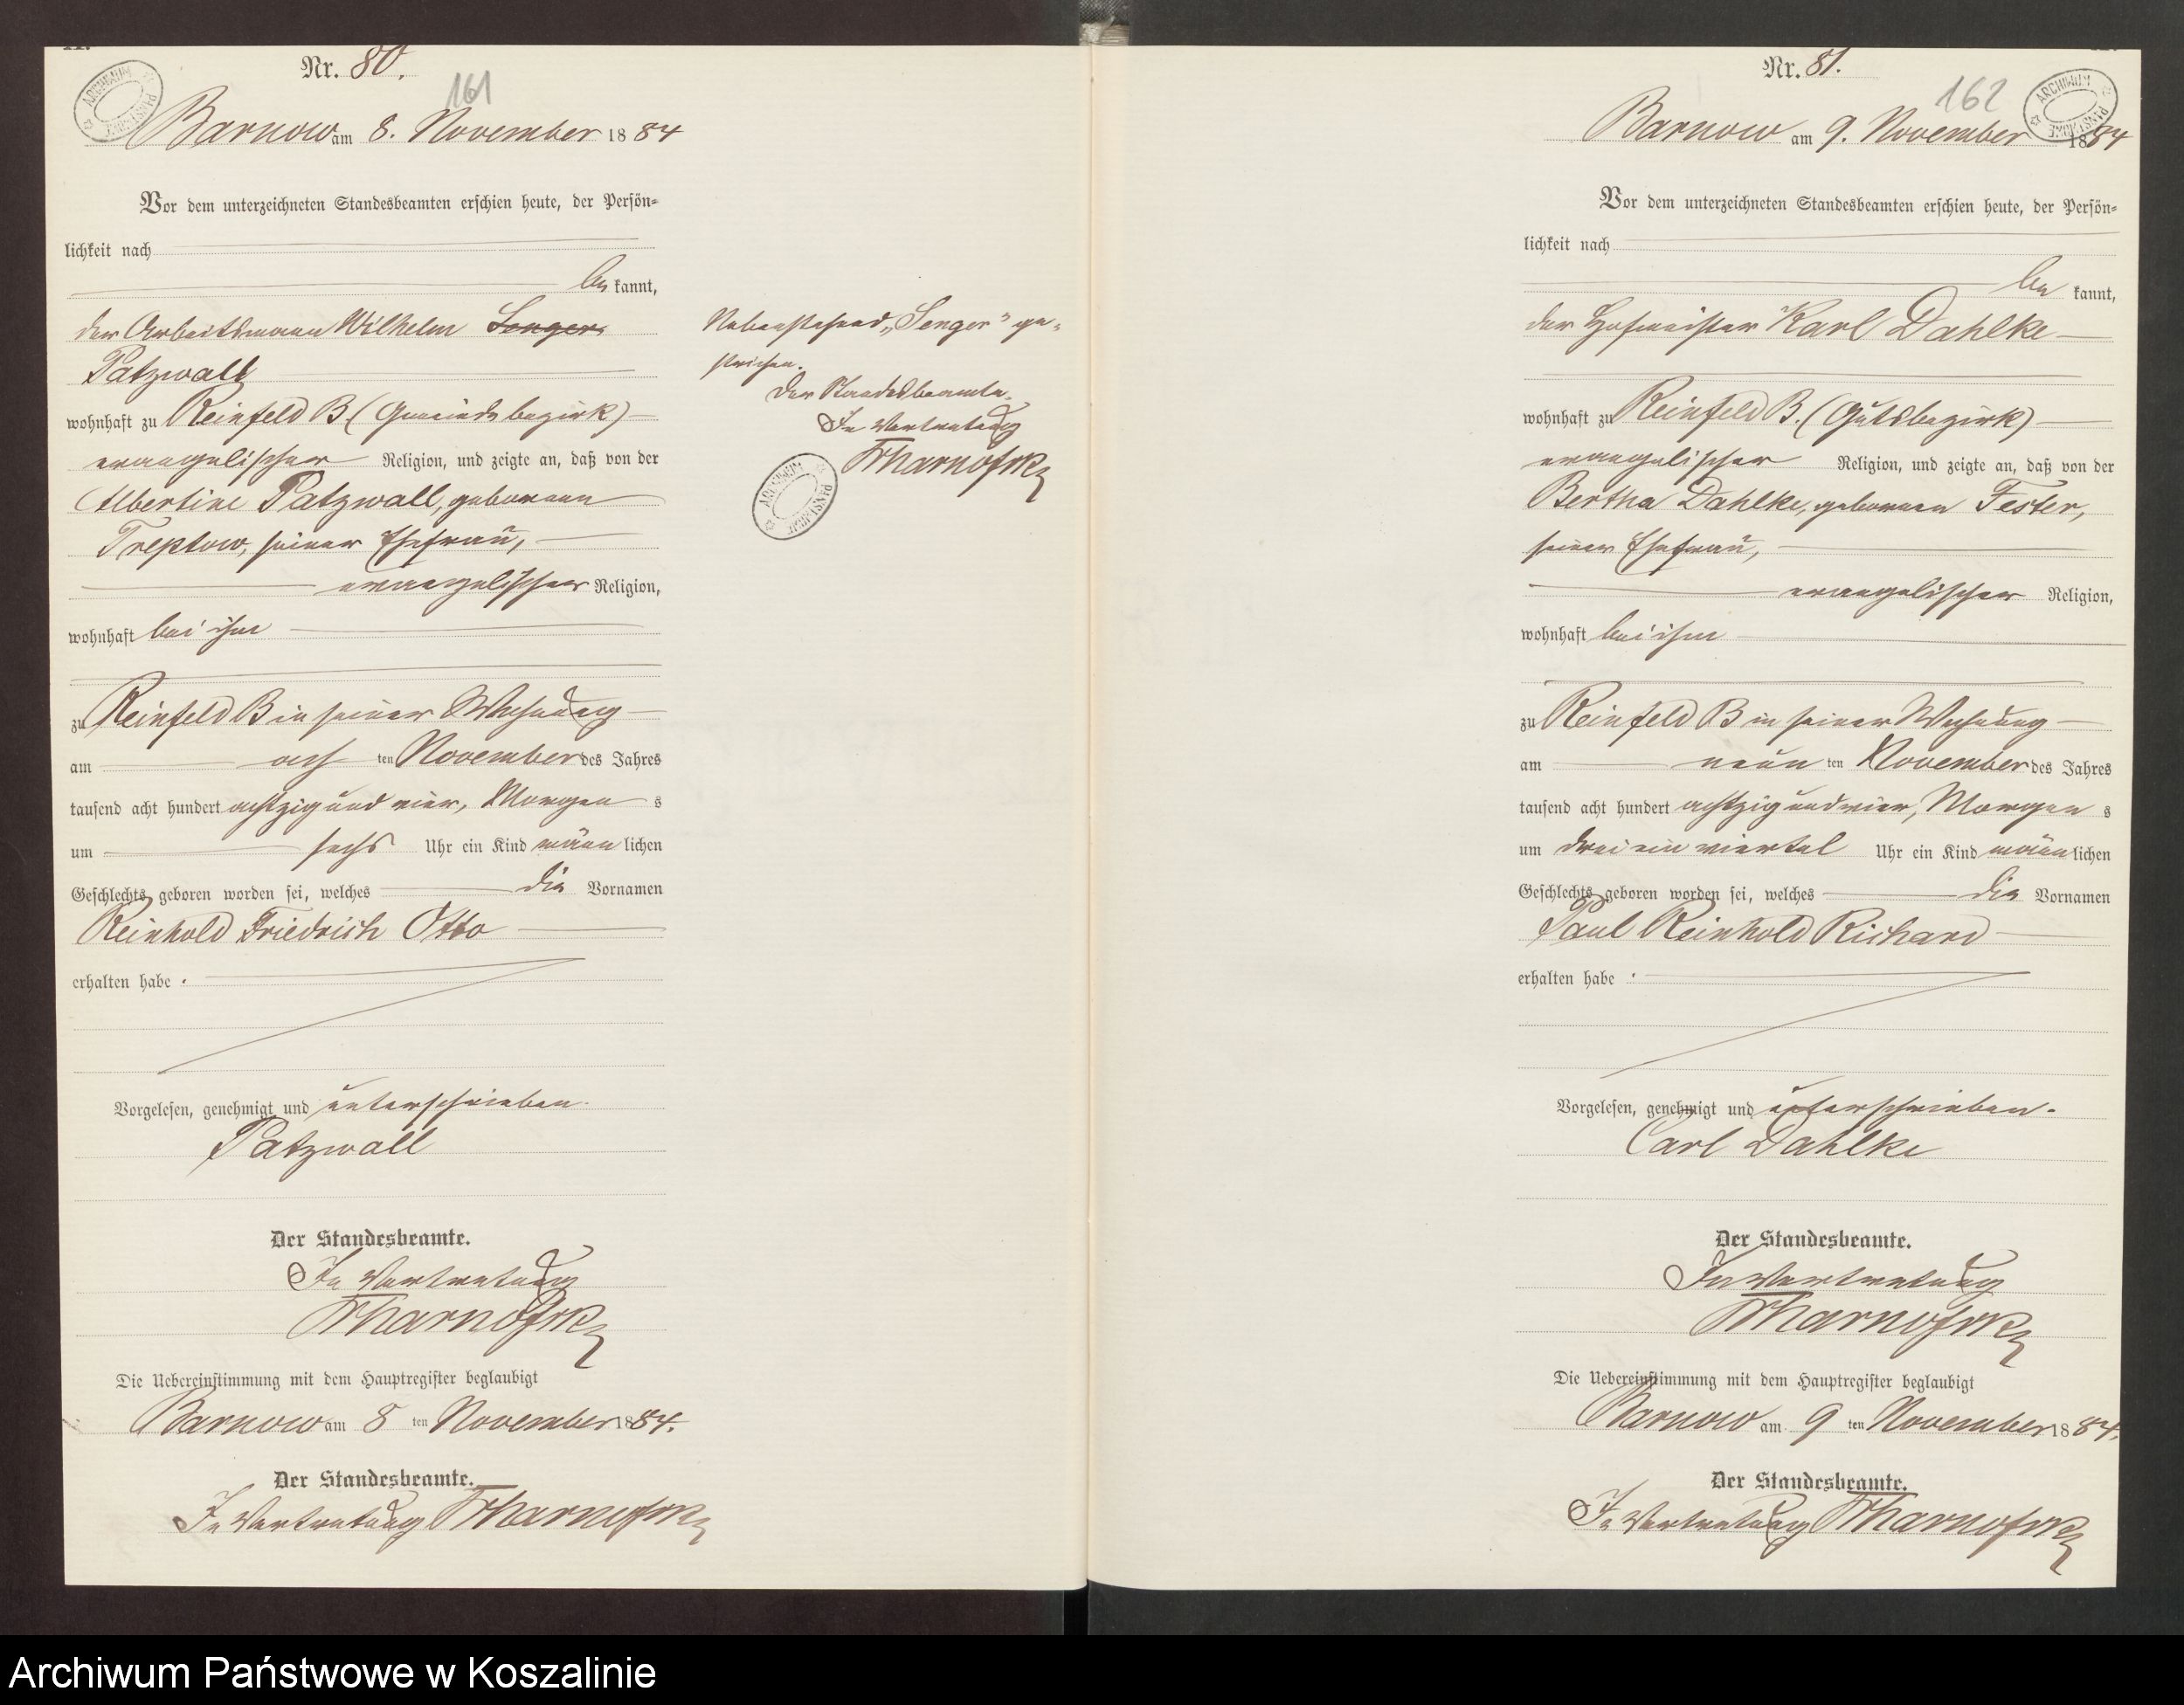 Nr. 80.
161
ARCHIWUM PAŃSTWOWE
Barnow am 8. November 1884
Vor dem unterzeichneten Standesbeamten erschien heute, der Persön-
lichkeit nach
be kannt,
der Arbeitsmann Wilhelm Senger
Patzwall
wohnhaft zu Reinfeld B (Gemeindebezirk)
evangelischer Religion, und zeigte an, daß von der
Albertine Patzwall, geborenen
Treptow, seiner Ehefrau,
evangelischer Religion,
wohnhaft bei ihm
zu Reinfeld B in seiner Wohnung
am acht ten November des Jahres
tausend acht hundert achtzig und vier, Morgen s
um sechs Uhr ein Kind männ lichen
Geschlechts geboren worden sei, welches die Vornamen
Reinhold Friedrich Otto
erhalten habe.
Vorgelesen, genehmigt und unterschrieben.
Patzwall
Der Standesbeamte.
In Vertretung
Die Uebereinstimmung mit dem Hauptregister beglaubigt
Barnow am 8 ten November 1884.
Der Standesbeamte.
In Vertretung
Nebenstehend „Senger" ge-
strichen.
Der Standesbeamte.
In Vertretung
ARCHIWUM PAŃSTWOWE
Nr. 81.
162
ARCHIWUM PAŃSTWOWE
Barnow am 9. November 1884
Vor dem unterzeichneten Standesbeamten erschien heute, der Persön-
lichkeit nach
be kannt,
der Hofmeister Karl Dahlke
wohnhaft zu Reinfeld B. (Gutsbezirk)
evangelischer Religion, und zeigte an, daß von der
Bertha Dahlke, geborenen Fester,
seiner Ehefrau,
evangelischer Religion,
wohnhaft bei ihm
zu Reinfeld B in seiner Wohnung
am neun ten November des Jahres
tausend acht hundert achtzig und vier, Morgen s
um drei ein viertel Uhr ein Kind männ lichen
Geschlechts geboren worden sei, welches die Vornamen
Paul Reinhold Richard
erhalten habe.
Vorgelesen, genehmigt und unterschrieben.
Carl Dahlke
Der Standesbeamte.
In Vertretung
Die Uebereinstimmung mit dem Hauptregister beglaubigt
Barnow am 9 ten November 1884.
Der Standesbeamte.
In Vertretung
Archiwum Państwowe w Koszalinie